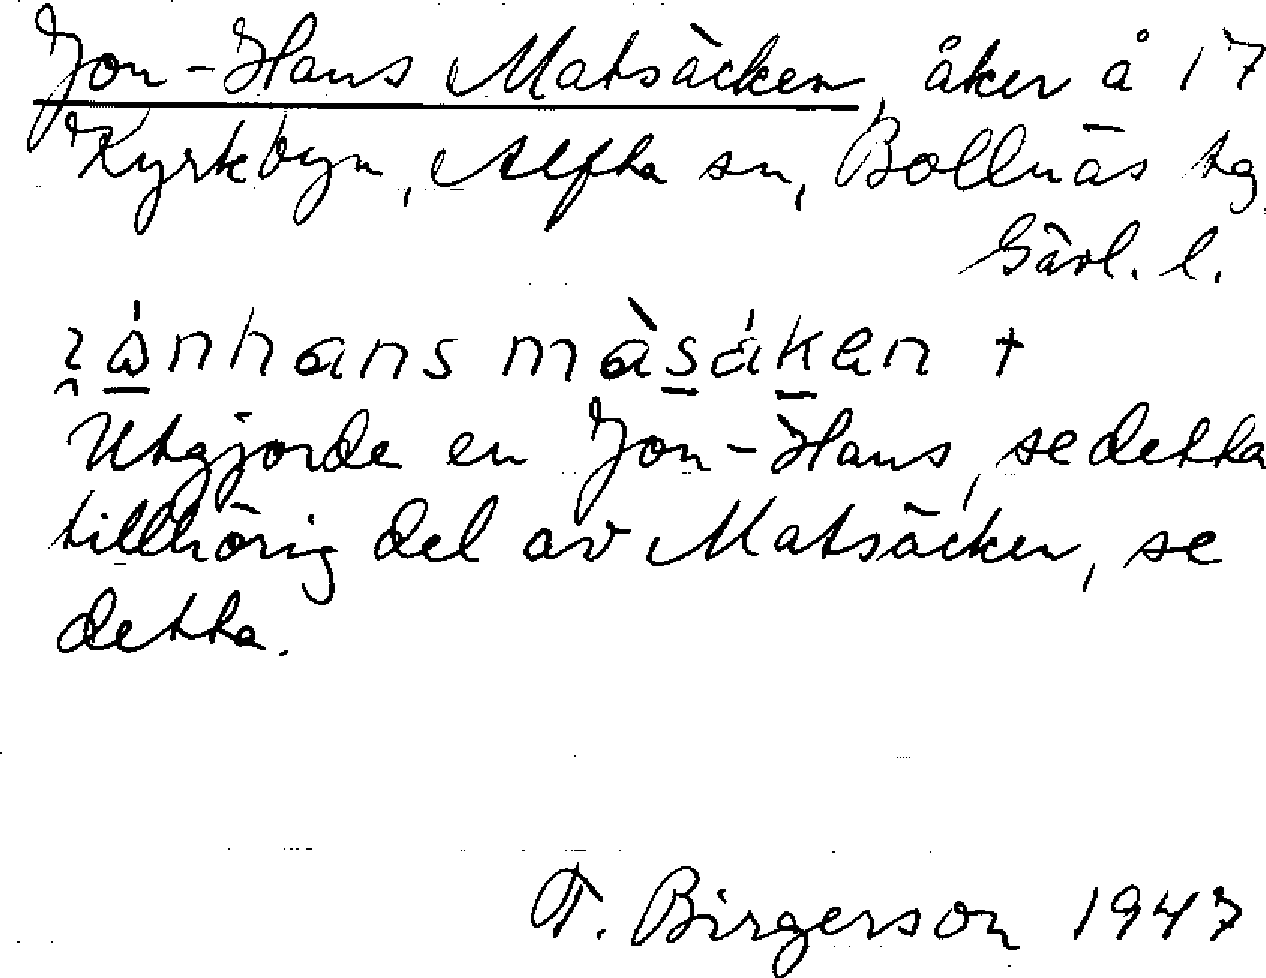 Jon-Hans Matsäcken, åker å 17
Kyrkbyn, Alfta sn, Bollnäs tg
Gävl. l.
månhans màsákan +
Utgjorde en Jon-Hans, se detta
tillhörig del av Matsäcken, se
detta.
F. Birgerson 1947